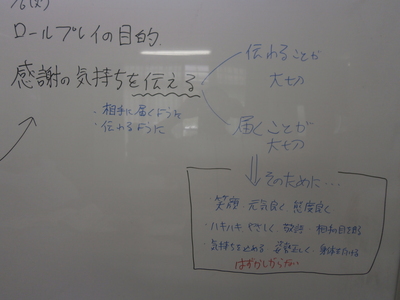 /6(火)
ロールプレイの目的.
感謝の気持ちを伝える
・相手に届くように
・伝わるように
伝わることが
大切
届くことが
大切
そのために…
笑顔 元気良く、態度良く
・ハキハキ やさしく、敬語・相手の目を見る
・気持ちを込める 姿勢正しく・身体をむける
はずかしがらない